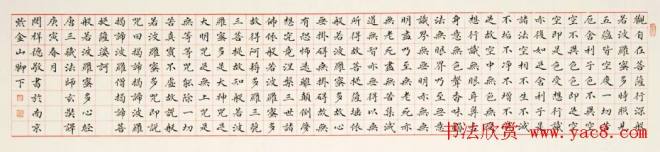 觀自在菩薩行深般
若波羅蜜多時照見
五蘊皆空度一切苦
厄舍利子色不異空
空不異色色即是空
空即是色受想行識
亦復如是舍利子是
諸法空相不生不滅
不垢不淨不增不減
是故空中無色無受
想行識無眼耳鼻舌
身意無色聲香味觸
法無眼界乃至無意
識界無無明亦無無
明盡乃至無老死亦
無老死盡無苦集滅
道無智亦無得以無
所得故菩提薩埵依
般若波羅蜜多故心
無掛礙無掛礙故無
有恐怖遠離顛倒夢
想究竟涅槃三世諸
佛依般若波羅蜜多
故得阿耨多羅三藐
三菩提故知般若波
羅蜜多是大神咒是
大明咒是無上咒是
無等等咒能除一切
苦真實不虛故說般
若波羅蜜多咒即說
咒曰揭諦揭諦波羅
揭諦波羅僧揭諦菩
提薩婆訶
般若波羅蜜多心經
唐三藏法師玄奘譯
庚寅春月
祥德敬書於南京
紫金山腳下
书法欣赏 www.yac8.com